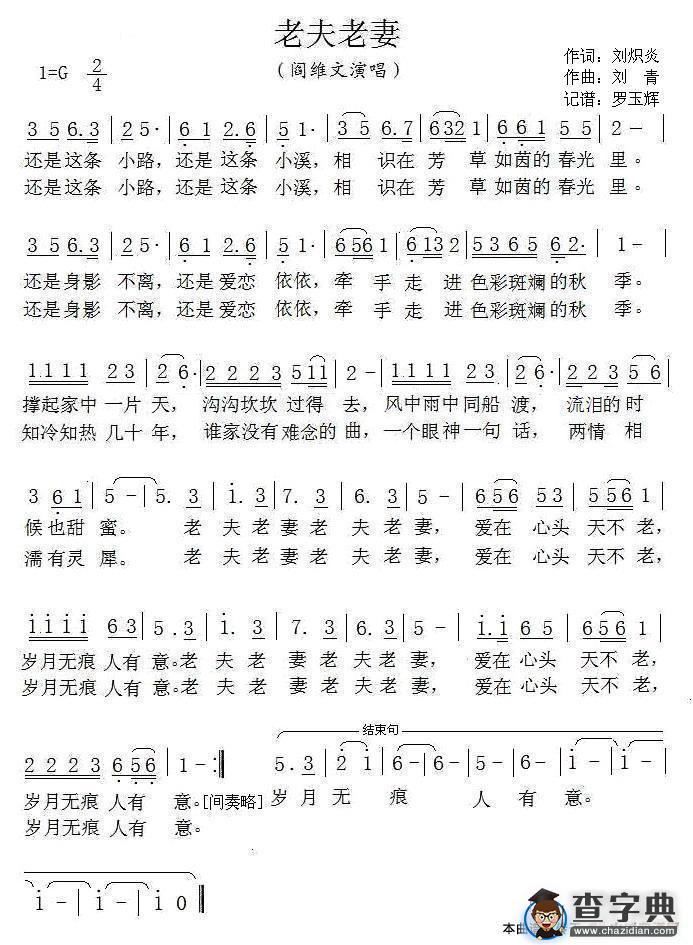 老夫老妻
（阎维文演唱）
1=G 2/4
作词：刘炽炎
作曲：刘 青
记谱：罗玉辉
3 5 6.3 | 2 5· | 6 1 2.6 | 5 1· | 3 5 6.7 | 6 3 2 1 | 6 6 1 5 5 | 2 - |
还是这条 小路，还是 这条 小溪，相 识在 芳 草 如茵的 春光 里。
还是这条 小路，还是 这条 小溪，相 识在 芳 草 如茵的 春光 里。
3 5 6.3 | 2 5· | 6 1 2.6 | 5 1· | 6 5 6 1 | 6 1 3 2 | 5 3 6 5 6 2· | 1 - |
还是身影 不离，还是 爱恋 依依，牵 手 走 进 色彩斑斓的秋 季。
还是身影 不离，还是 爱恋 依依，牵 手 走 进 色彩斑斓的秋 季。
1.1 1 1 2 3 | 2 6· | 2 2 2 3 5 1 1 | 2 - | 1.1 1 1 2 3 | 2 6· | 2.2 2 3 5 6 5 |
撑起家中 一片 天， 沟沟坎坎 过得 去，风中雨中 同船 渡， 流泪的时
知冷知热 几十 年， 谁家没有 难念的 曲，一个眼神 一句 话， 两情 相
3 6 1 | 5 - | 5. 3 | 1. 3 | 7. 3 | 6. 3 | 5 - | 6 5 6 5 3 | 5 5 6 5 |
候也甜 蜜。 老 夫 老 妻 老 夫 老 妻， 爱在 心头 天不 老，
濡有灵 犀。 老 夫 老 妻 老 夫 老 妻， 爱在 心头 天不 老，
1 1 1 1 6 3 | 5 . 3 | 1. 3 | 7. 3 | 6. 3 | 5 - | 1.1 6 5 | 5 5 6 5 |
岁月无痕 人有 意。老 夫 老 妻 老 夫 老 妻， 爱在 心头 天不 老，
岁月无痕 人有 意。老 夫 老 妻 老 夫 老 妻， 爱在 心头 天不 老，
结束句
2 2 2 3 6 5 6 | 1 - :| 5. 3 | 2 1 | 6 - | 6 - | 5 - | 6 - | 1 - | 1 - |
岁月无痕 人有 意。[间奏略] 岁 月 无 痕 人 有 意。
岁月无痕 人有 意。
1 - | 1 - | 1 0 ‖
本曲谱
查字典
www.chazidian.com